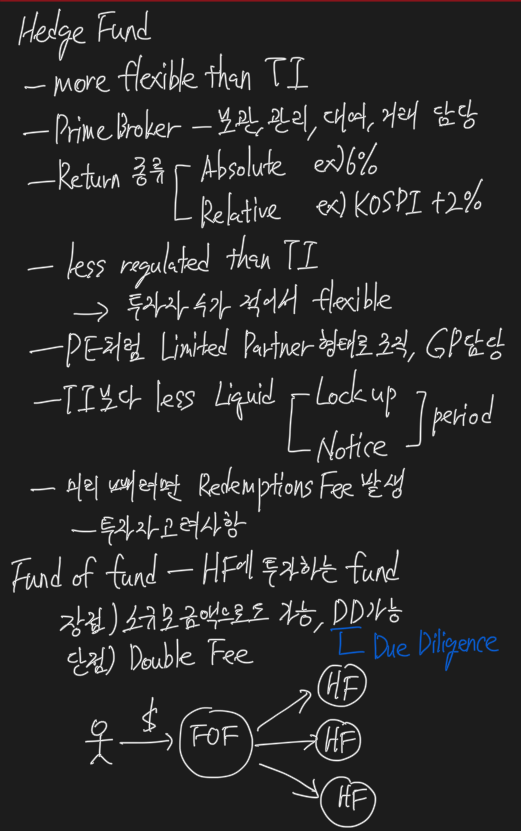 Hedge Fund
- more flexible than TI
- Prime Broker - 보관, 관리, 대여, 거래 담당
- Return 종류 Absolute ex) 6%
Relative ex) KOSPI +2%
- less regulated than TI
→ 투자자 수가 적어서 flexible
- PE처럼 Limited Partner 형태로 조직, GP담당
- TI보다 less Liquid Lock up
Notice period
- 미리 빼려면 Redemptions Fee 발생
- 투자자 고려사항
Fund of fund - HF에 투자하는 fund
장점) 소규모 금액으로도 가능, DD가능
단점) Double Fee Due Diligence
$ FOF HF
HF
HF